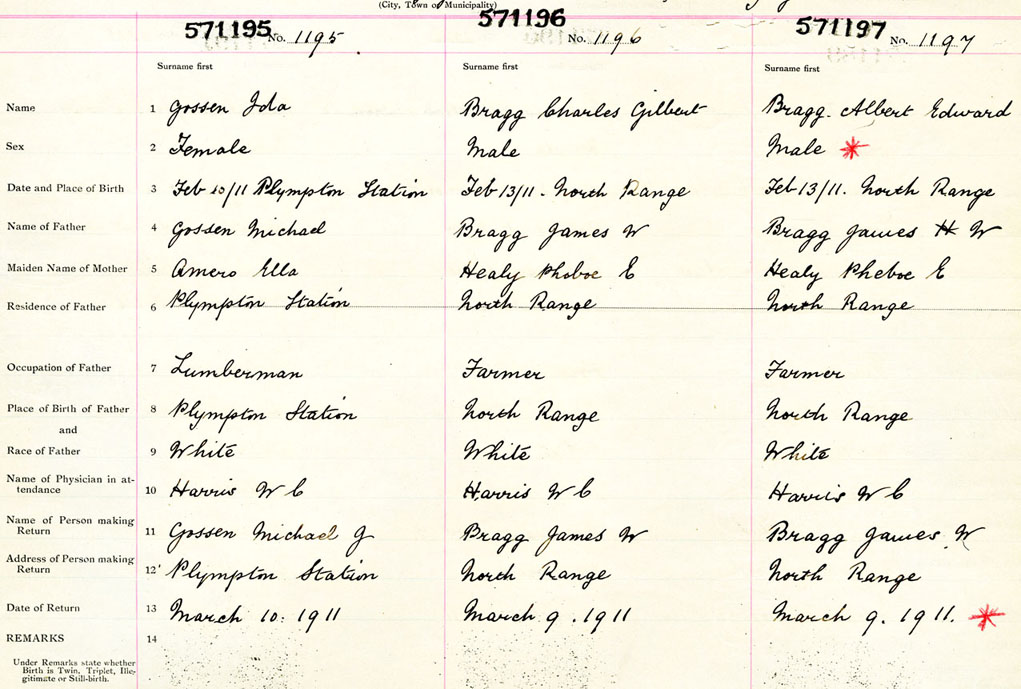 (City, Town or Municipality)
571195 No. 1195 571196 No. 1196 571197 No. 1197
Surname first Surname first Surname first
Name 1 Gossen Ida Bragg Charles Gilbert Bragg. Albert Edward
Sex 2 Female Male Male *
Date and Place of Birth 3 Feb 10/11 Plympton Station Feb 13/11 - North Range Feb 13/11. North Range
Name of Father 4 Gossen Michael Bragg James W Bragg James H W
Maiden Name of Mother 5 Amero Ella Healy Phoboe E Healy Pheboe E
Residence of Father 6 Plympton Station North Range North Range
Occupation of Father 7 Lumberman Farmer Farmer
Place of Birth of Father 8 Plympton Station North Range North Range
and
Race of Father 9 White White White
Name of Physician in at-
tendance 10 Harris W C Harris W C Harris W C
Name of Person making
Return 11 Gossen Michael J Bragg James W Bragg James W
Address of Person making
Return 12 Plympton Station North Range North Range
Date of Return 13 March 10: 1911 March 9. 1911 March 9. 1911. *
REMARKS 14
Under Remarks state whether
Birth is Twin, Triplet, Ille-
gitimate or Still-birth.